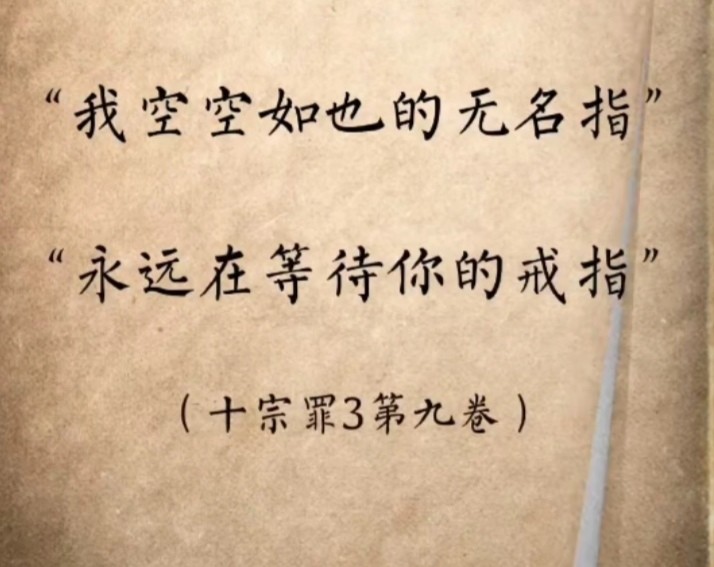 “我空空如也的无名指”
“永远在等待你的戒指”
（十宗罪3第九卷）